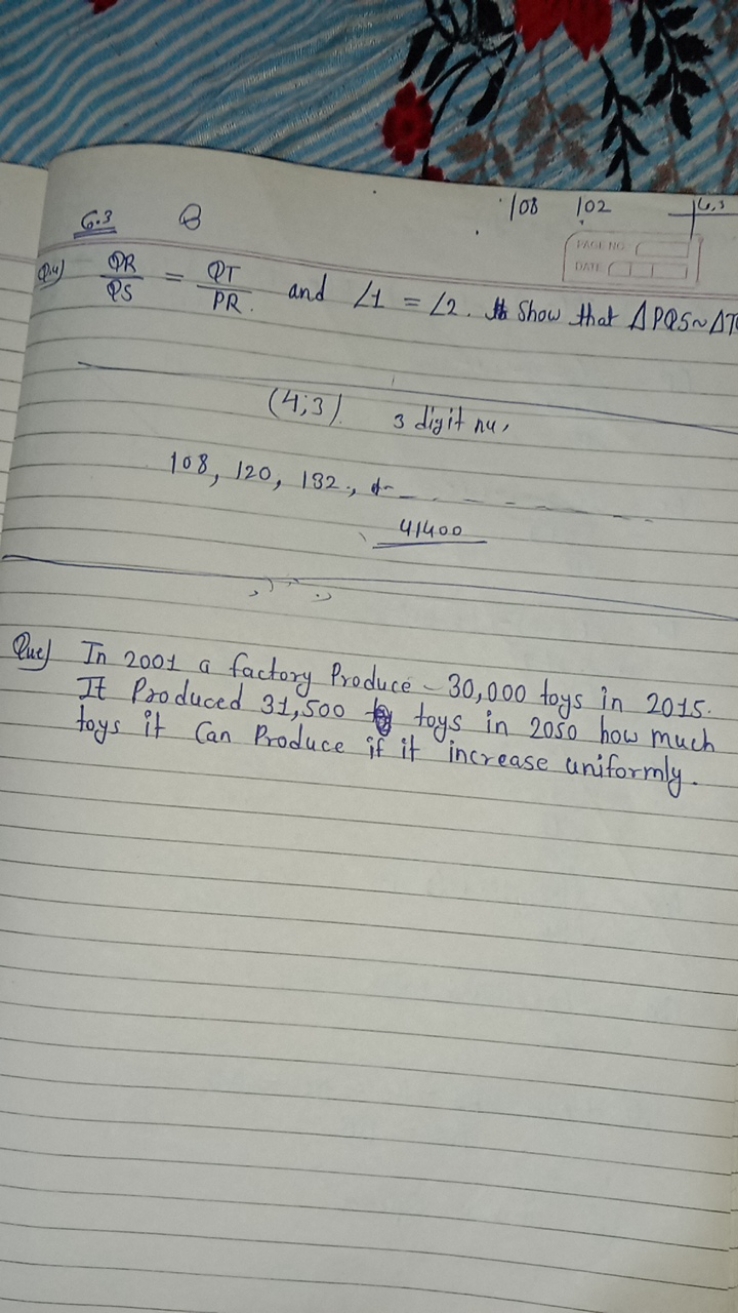 108 102 6.3
6.3 B
PAGE NO.
DATE
Qu4) QR/QS = QT/PR. and ∠1 = ∠2. Show that ΔPQS~ΔT
(4,3) 3 digit nu,
108, 120, 132,, - - - - - -
41400
Que) In 2001 a factory Produce - 30,000 toys in 2015.
It Produced 31,500 toys in 2050 how much
toys it Can Produce if it increase uniformly.